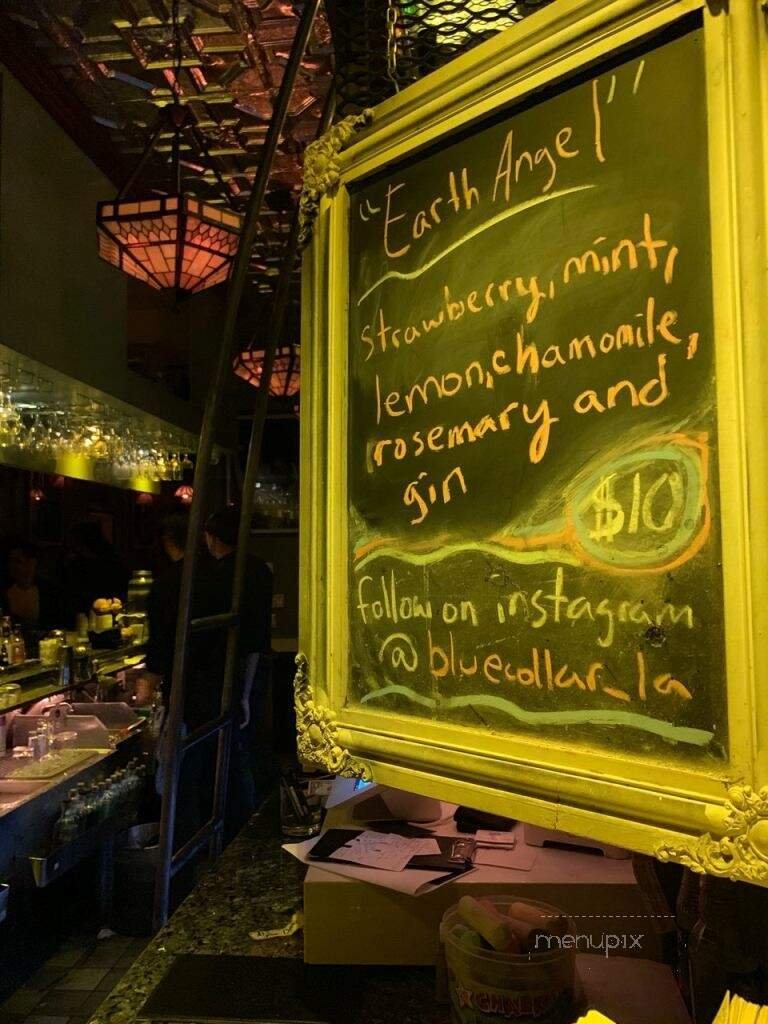 "Earth Angel"
strawberry, mint,
lemon, chamomile,
rosemary and
gin
$10
follow on instagram
@bluecollar_la
menupix